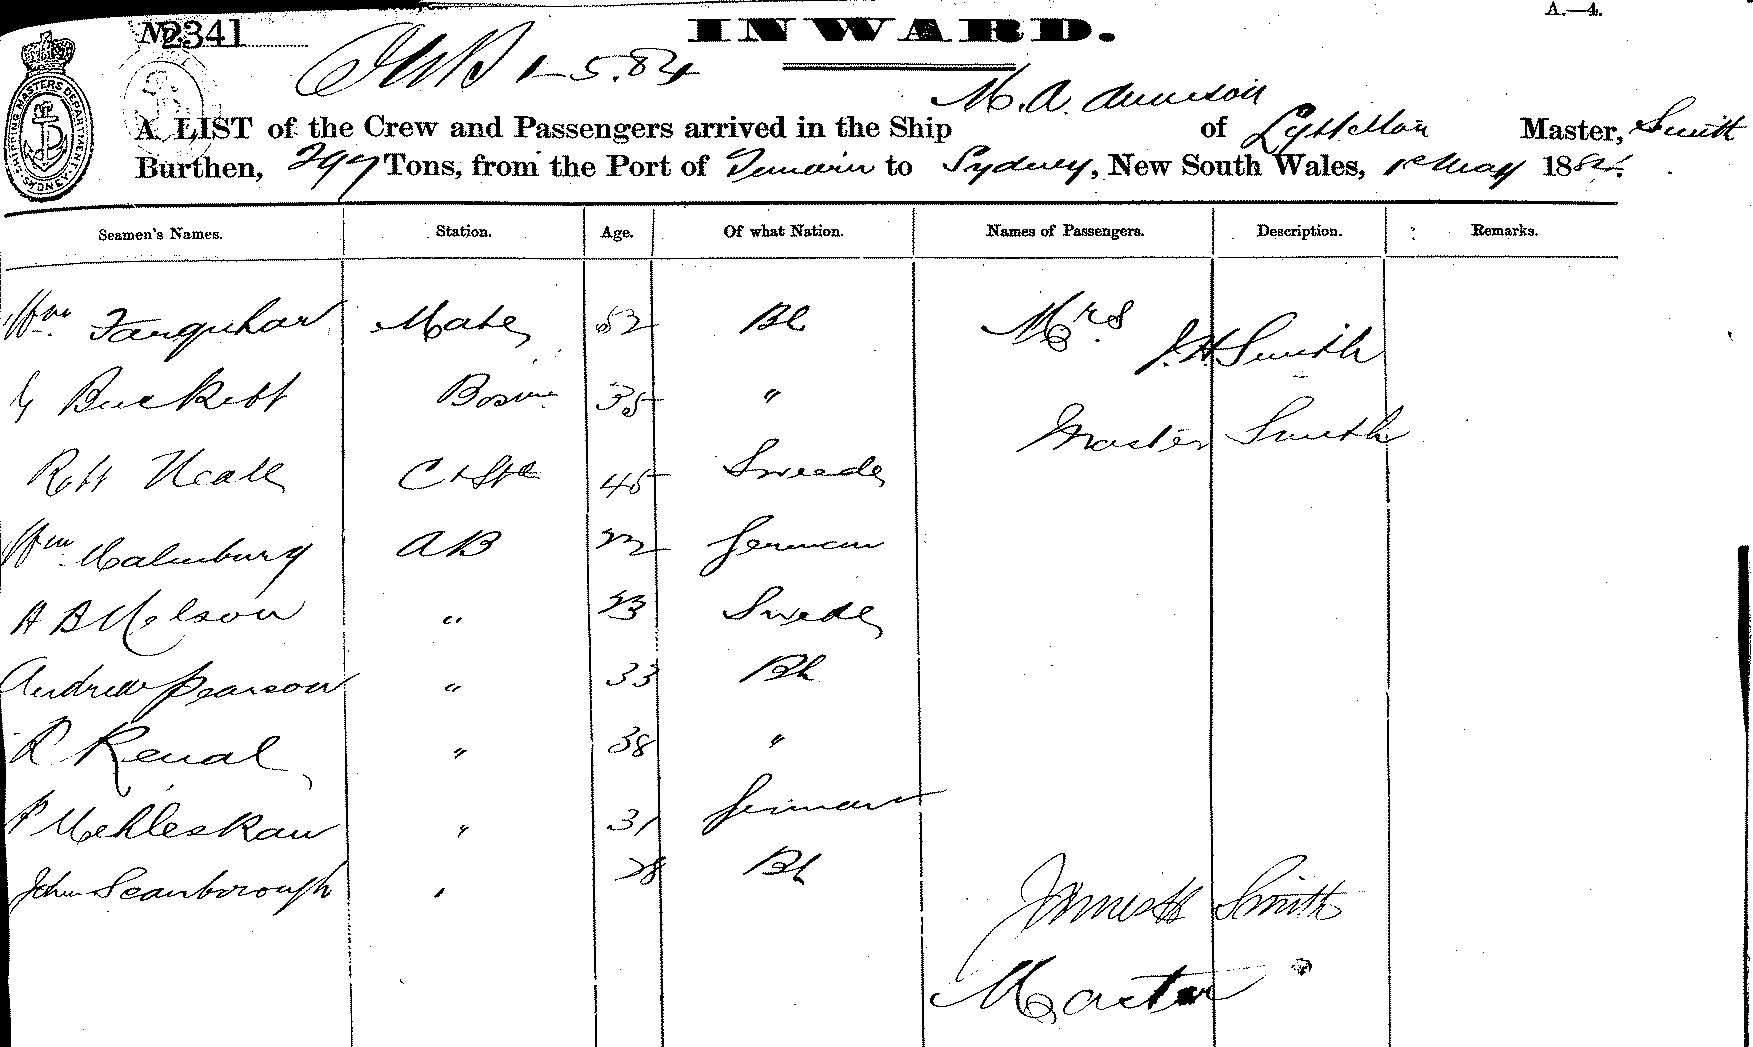 No. 2341
INWARD.
A.—4.
1–5.84
M. A. 
A LIST of the Crew and Passengers arrived in the Ship of Lyttelton Master, Smith
Burthen, 297 Tons, from the Port of to Sydney, New South Wales, 1st May 1884.
SHIPPING MASTERS DEPARTMENT SYDNEY
Seamen's Names. Station. Age. Of what Nation. Names of Passengers. Description. Remarks.
Wm Farquhar Mate 52 Bh Mrs
J. H Smith
G Buckett Bosun 35 "
Master Smith
Robt Neale C & Std 45 Sweade
Wm Malmburg AB 22 German
A B Nelson " 23 Swede
Andrew Pearson " 33 Bh
R Renal " 38 "
P " 31 German
John Scarborough " 28 Bh
James H Smith
Master